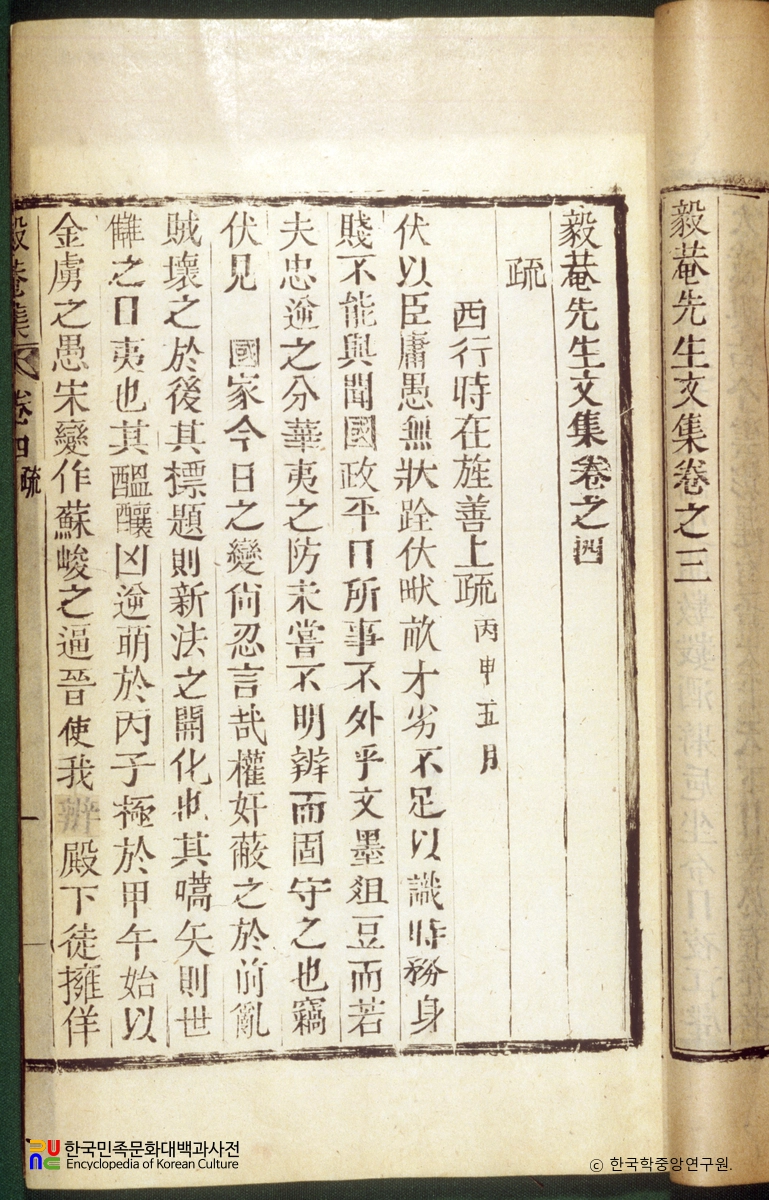 毅菴先生文集卷之三
毅菴先生文集卷之四
疏
西行時在旌善上疏 丙申五月
伏以臣庸愚無狀跧伏畎畝才劣不足以識時務身
賤不能與聞國政平日所事不外乎文墨俎豆而若
夫忠逆之分華夷之防未嘗不明辨而固守之也竊
伏見 國家今日之變尙忍言哉權奸蔽之於前亂
賊壞之於後其標題則新法之開化也其嚆矢則世
讎之日夷也其醞釀凶逆萌於丙子極於甲午始以
金虜之愚宋變作蘇峻之逼晉使我 殿下徒擁佯
毅菴集 卷四 疏
한국민족문화대백과사전
Encyclopedia of Korean Culture
© 한국학중앙연구원.